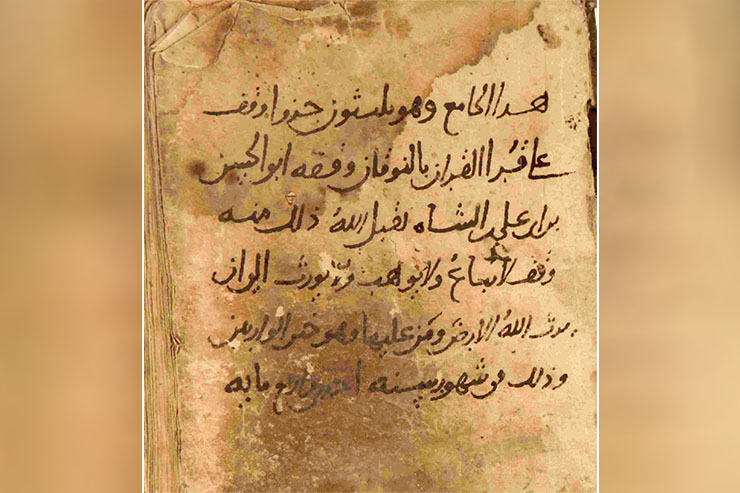 هذا الجامع وهو ثلثون جزوا وقف
على قبرا القران بالنوقان وقفه ابو الحسين
علي الشاه تقبل الله ذلك منه
وقف لا يباع ولا يوهب ولا يورث الى ان
يرث الله الارض ومن عليها وهو خير الوارثين
وذلك في شهور سنه اربع مايه